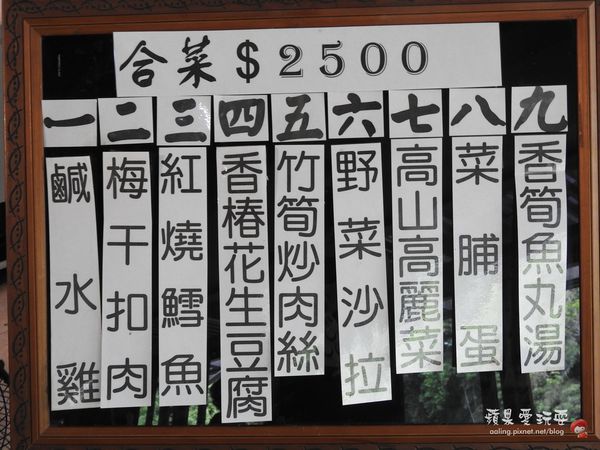 合菜$2500
一 鹹水雞
二 梅干扣肉
三 紅燒鱈魚
四 香椿花生豆腐
五 竹筍炒肉絲
六 野菜沙拉
七 高山高麗菜
八 菜脯蛋
九 香筍魚丸湯
蘋果愛玩耍
aaling.pixnet.net/blog